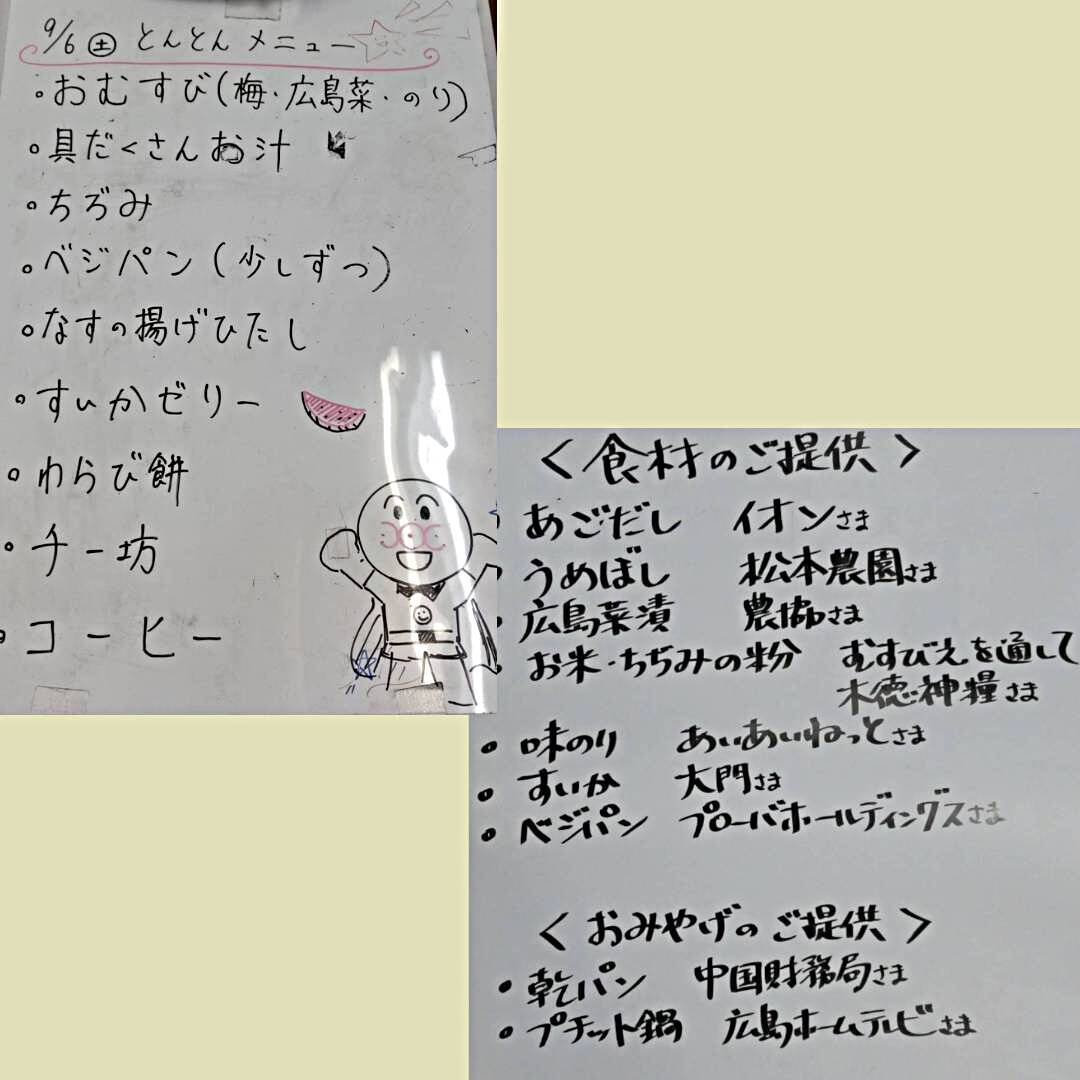 9/6 土 とんとんメニュー
・おむすび(梅・広島菜・のり)
・具だくさんお汁
・ちぢみ
・ベジパン(少しずつ)
・なすの揚げひたし
・すいかゼリー
・わらび餅
・チー坊
・コーヒー
<食材のご提供>
あごだし イオンさま
うめぼし 松本農園さま
広島菜漬 農協さま
お米・ちぢみの粉 むすびえを通して
木徳神糧さま
・味のり あいあいねっとさま
・すいか 大門さま
・ベジパン プローバホールディングスさま
<おみやげのご提供>
・乾パン 中国財務局さま
・プチット鍋 広島ホームテレビさま